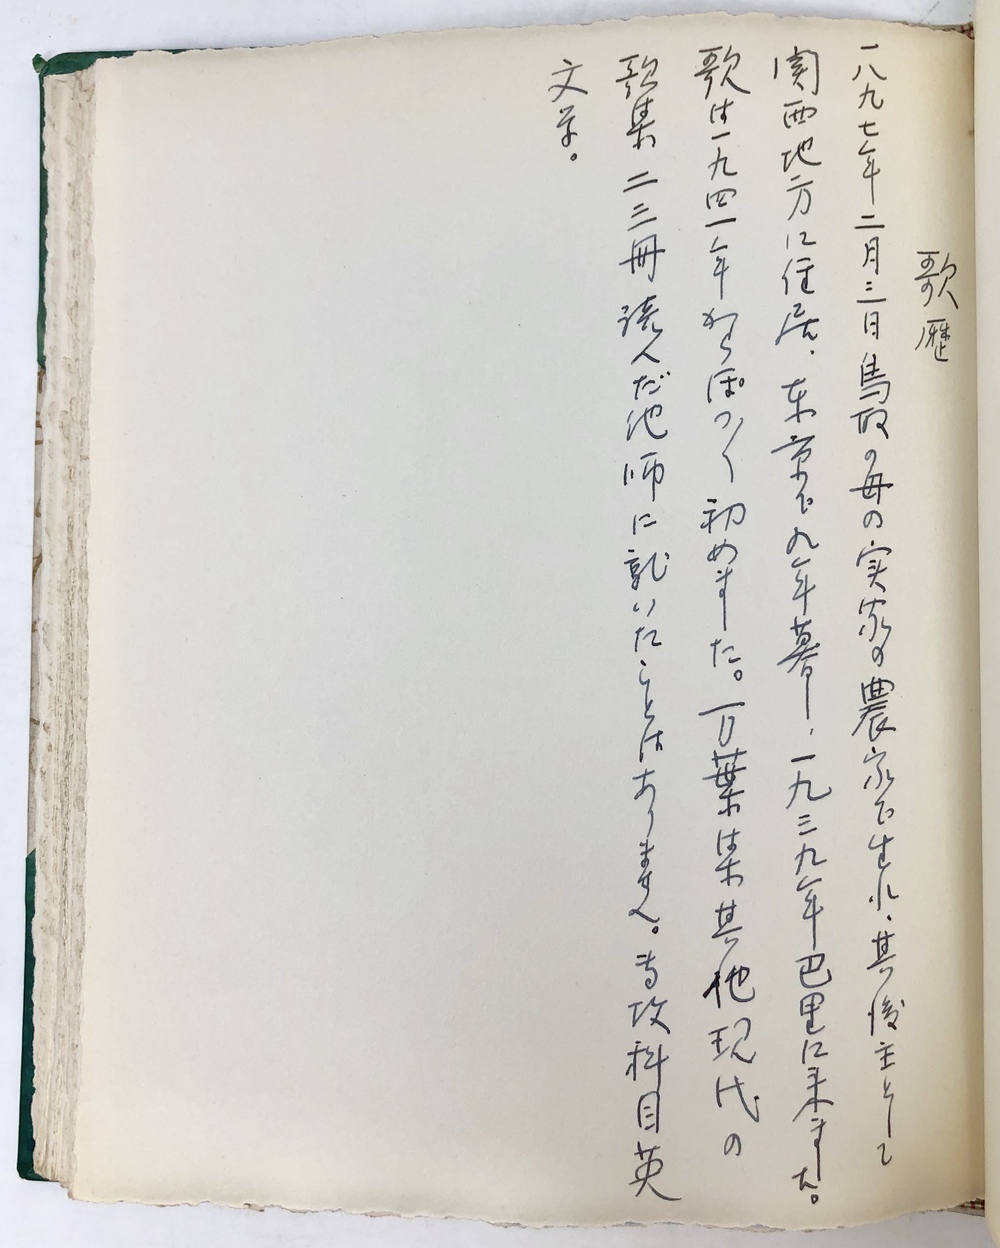 歌歴
一八九七年二月三日鳥取の母の実家の農家で生れ、其後主として
関西地方に住居、東京で九年暮し、一九三九年巴里に来ました。
歌は一九四一年からぽつ〳〵初めました。万葉集其他現代の
歌集二三冊読んだ他師に就いたことはありません。専攻科目英
文学。